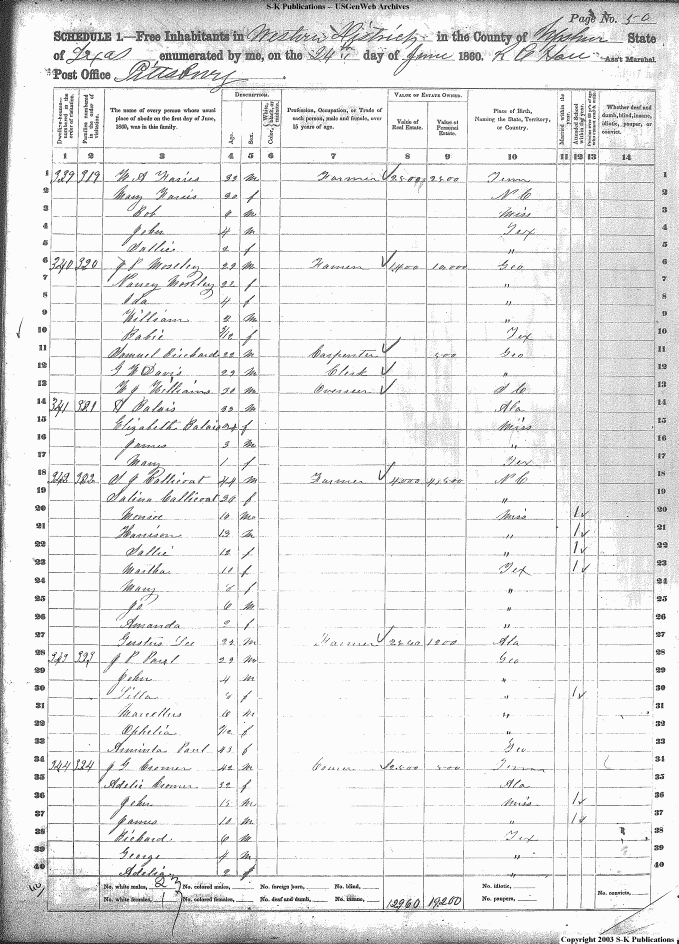 S-K Publications – USGenWeb Archives
Page No. 50
SCHEDULE 1.—Free Inhabitants in Western District in the County of Upshur State
of Texas enumerated by me, on the 24th day of June 1860. Ass't Marshal.
Post Office Pittsburg.
DESCRIPTION. VALUE OF ESTATE OWNED.
Dwelling-houses—numbered in the order of visitation. Families numbered in the order of visitation. The name of every person whose usual place of abode on the first day of June, 1860, was in this family. Age. Sex. Color, White, black, or mulatto. Profession, Occupation, or Trade of each person, male and female, over 15 years of age. Value of Real Estate. Value of Personal Estate. Place of Birth, Naming the State, Territory, or Country. Married within the year. Attended School within the year. Whether deaf and dumb, blind, insane, idiotic, pauper, or convict.
1 2 3 4 5 6 7 8 9 10 11 12 13 14
1 339 319 W A Farris 32 m Farmer 2500 2500 Tenn 1
2 Mary Farris 30 f N C 2
3 Bob 9 m Miss 3
4 John 4 m Tex 4
5 Sallie 2 f " 5
6 340 320 J P Mostley 29 m Farmer 1400 10,000 Geo 6
7 Nancy Mostley 22 f " 7
8 Ida 4 f " 8
9 William 2 m " 9
10 Babie /12 f Tex 10
11 Samuel 22 m Carpenter 500 Geo 11
12 G W Davis 29 m Clerk " 12
13 W J Williams 30 m Overseer S C 13
14 341 321 Balais 33 m Ala 14
15 Elizabeth Balais 24 f Miss 15
16 James 3 m " 16
17 Mary 1 f Tex 17
18 342 322 Callicoat 44 m Farmer 4000 4,500 N C 18
19 Salina Callicoat 30 f " 19
20 Monroe m Miss 1 20
21 Harrison 13 m " 1 21
22 Sallie 12 f " 1 22
23 Martha 11 f Tex 1 23
24 Mary 8 f " 24
25 6 m " 25
26 Amanda 2 f " 26
27 Lee 22 m Farmer 1200 Ala 27
28 343 323 J P Paul 29 m Geo 28
29 John 4 m " 29
30 f " 1 30
31 Marcellus 6 m " 31
32 Ophelia /12 f " 32
33 Arminta Paul 43 f Geo 33
34 344 324 J G Cromer 42 m 2,500 500 Tenn 34
35 Adelie Cromer 32 f Ala 35
36 John 13 m Miss 1 36
37 James 10 m " 1 37
38 Richard 6 m Tex 38
39 George 4 m " 39
40 Adelia 2 f " 40
No. white males, No. colored males, No. foreign born, No. blind, No. idiotic,
No. white females, No. colored females, No. deaf and dumb, No. insane, 12960 19200 No. paupers, No. convicts,
Copyright 2003 S-K Publications